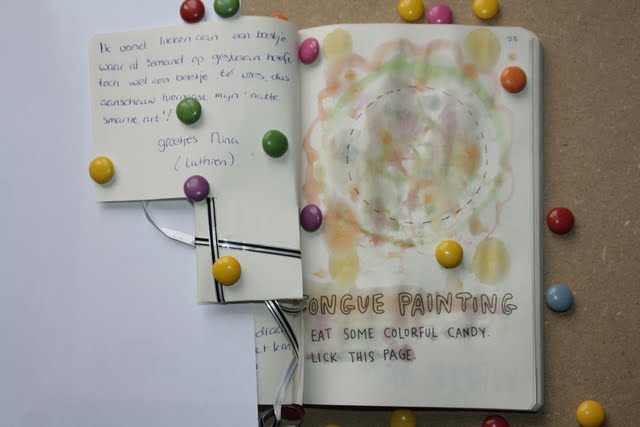 Ik vond likken aan een boekje
waar al iemand op gestaan heeft
toch wel een beetje té vies, dus
aanschouw hiernaast mijn 'natte
smartie art'!
groetjes Nina
(Luthien)
TONGUE PAINTING
EAT SOME COLORFUL CANDY.
LICK THIS PAGE.